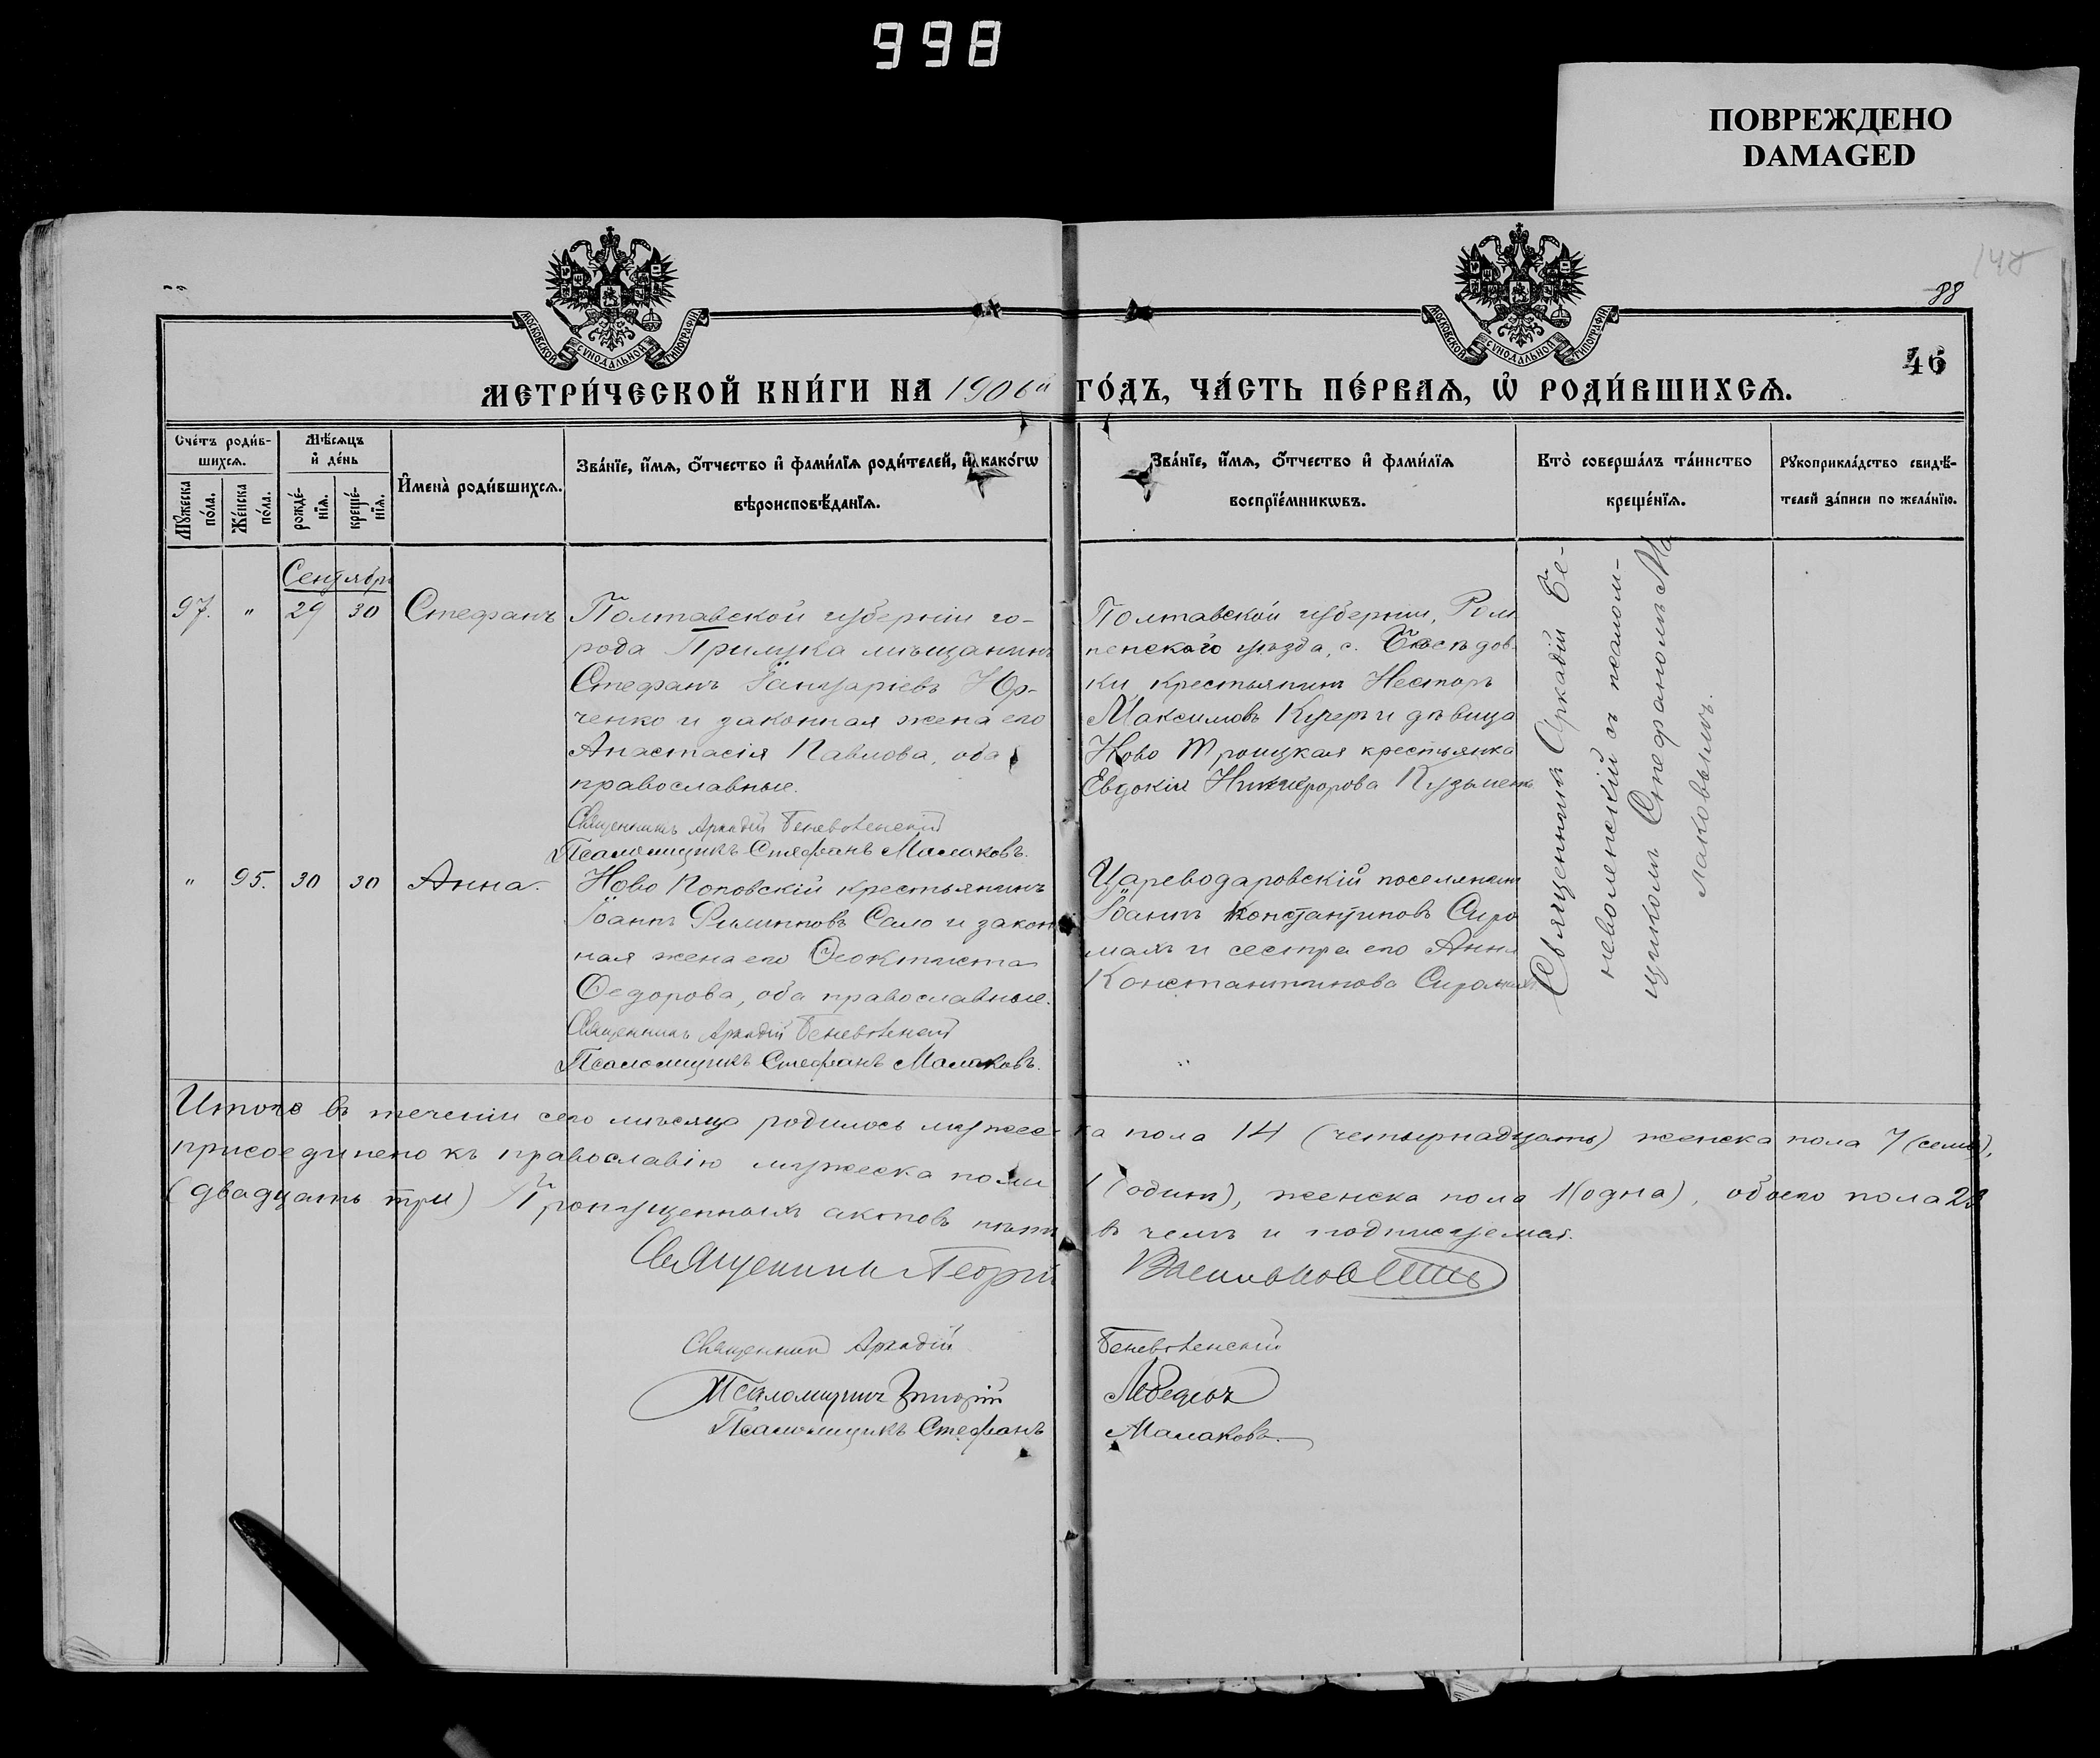 998
ПОВРЕЖДЕНО
DAMAGED
148
88
46
МОСКОВСКОЙ СѴНОДАЛЬНОЙ ТИПОГРАФІИ
МОСКОВСКОЙ СѴНОДАЛЬНОЙ ТИПОГРАФІИ
МЕТРИ́ЧЕСКОЙ КНИ́ГИ НА 1906й ГО́ДЪ, ЧА́СТЬ ПЕ́РВАѦ, Ѽ РОДИ́ВШИХСѦ.
Сче́тъ роди́в-
шихсѧ.
Мꙋжеска по́ла.
Же́нска по́ла.
Мѣ́сѧцъ
и҆ де́нь
рожде́-
нїѧ.
креще́-
нїѧ.
И҆мена̀ роди́вшихсѧ.
Зва́нїе, и҆́мѧ, ѻ҆́тчество и҆ фами́лїѧ роди́телей, и҆ како́гѡ
вѣроисповѣ́данїѧ.
Зва́нїе, и҆́мѧ, ѻ҆́тчество и҆ фами́лїѧ
воспрїе́мникѡвъ.
Кто̀ соверша́лъ та́инство
креще́нїѧ.
Рꙋкоприкла́дство свидѣ́-
телей за́писи по жела́нїю.
Сентябрь
97. " 29 30 Стефанъ
Полтавской губерніи го-
рода Прилука мѣщанинъ
Стефанъ Юр-
ченко и законная жена его
Анастасія Павлова, оба
православные.
Священникъ Аркадій Беневоленскій
Псаломщикъ Стефанъ Малаковъ.
Полтавской губерніи, Ром
пенскаго уѣзда, с. Бѣсѣдов
ки крестьянинъ Несторъ
Максимовъ Кучеръ и дѣвица
Ново Троицкая крестьянка
Евдокія Никифорова Кузьменко
Священникъ Аркадій Бе-
неволенскій съ псалом-
щикомъ Стефаномъ Ма
лаковымъ.
" 95. 30 30 Анна.
Ново Поповскій крестьянинъ
Іоаннъ Филипповъ Сало и закон
ная жена его Ѳеоктиста
Ѳедорова, оба православные.
Священникъ Аркадій Беневоленскій
Псаломщикъ Стефанъ Малаковъ.
Цареводаровскій поселянинъ
Іоаннъ Константиновъ Сиро
махъ и сестра его Анна
Константинова Сиромахъ.
Итого въ теченіи сего мѣсяца родилось мужес ка пола 14 (четырнадцать) женска пола 7 (семь),
присоединено къ православію мужеска пола 1 (одинъ), женска пола 1 (одна), обоего пола 23
(двадцать три) Пропущенныхъ актовъ нѣтъ въ чемъ и подписуемся.
Священникъ Георгій Васильковскій
Священникъ Аркадій Беневоленскій
Псаломщикъ Григорій Лебедевъ
Псаломщикъ Стефанъ Малаковъ.